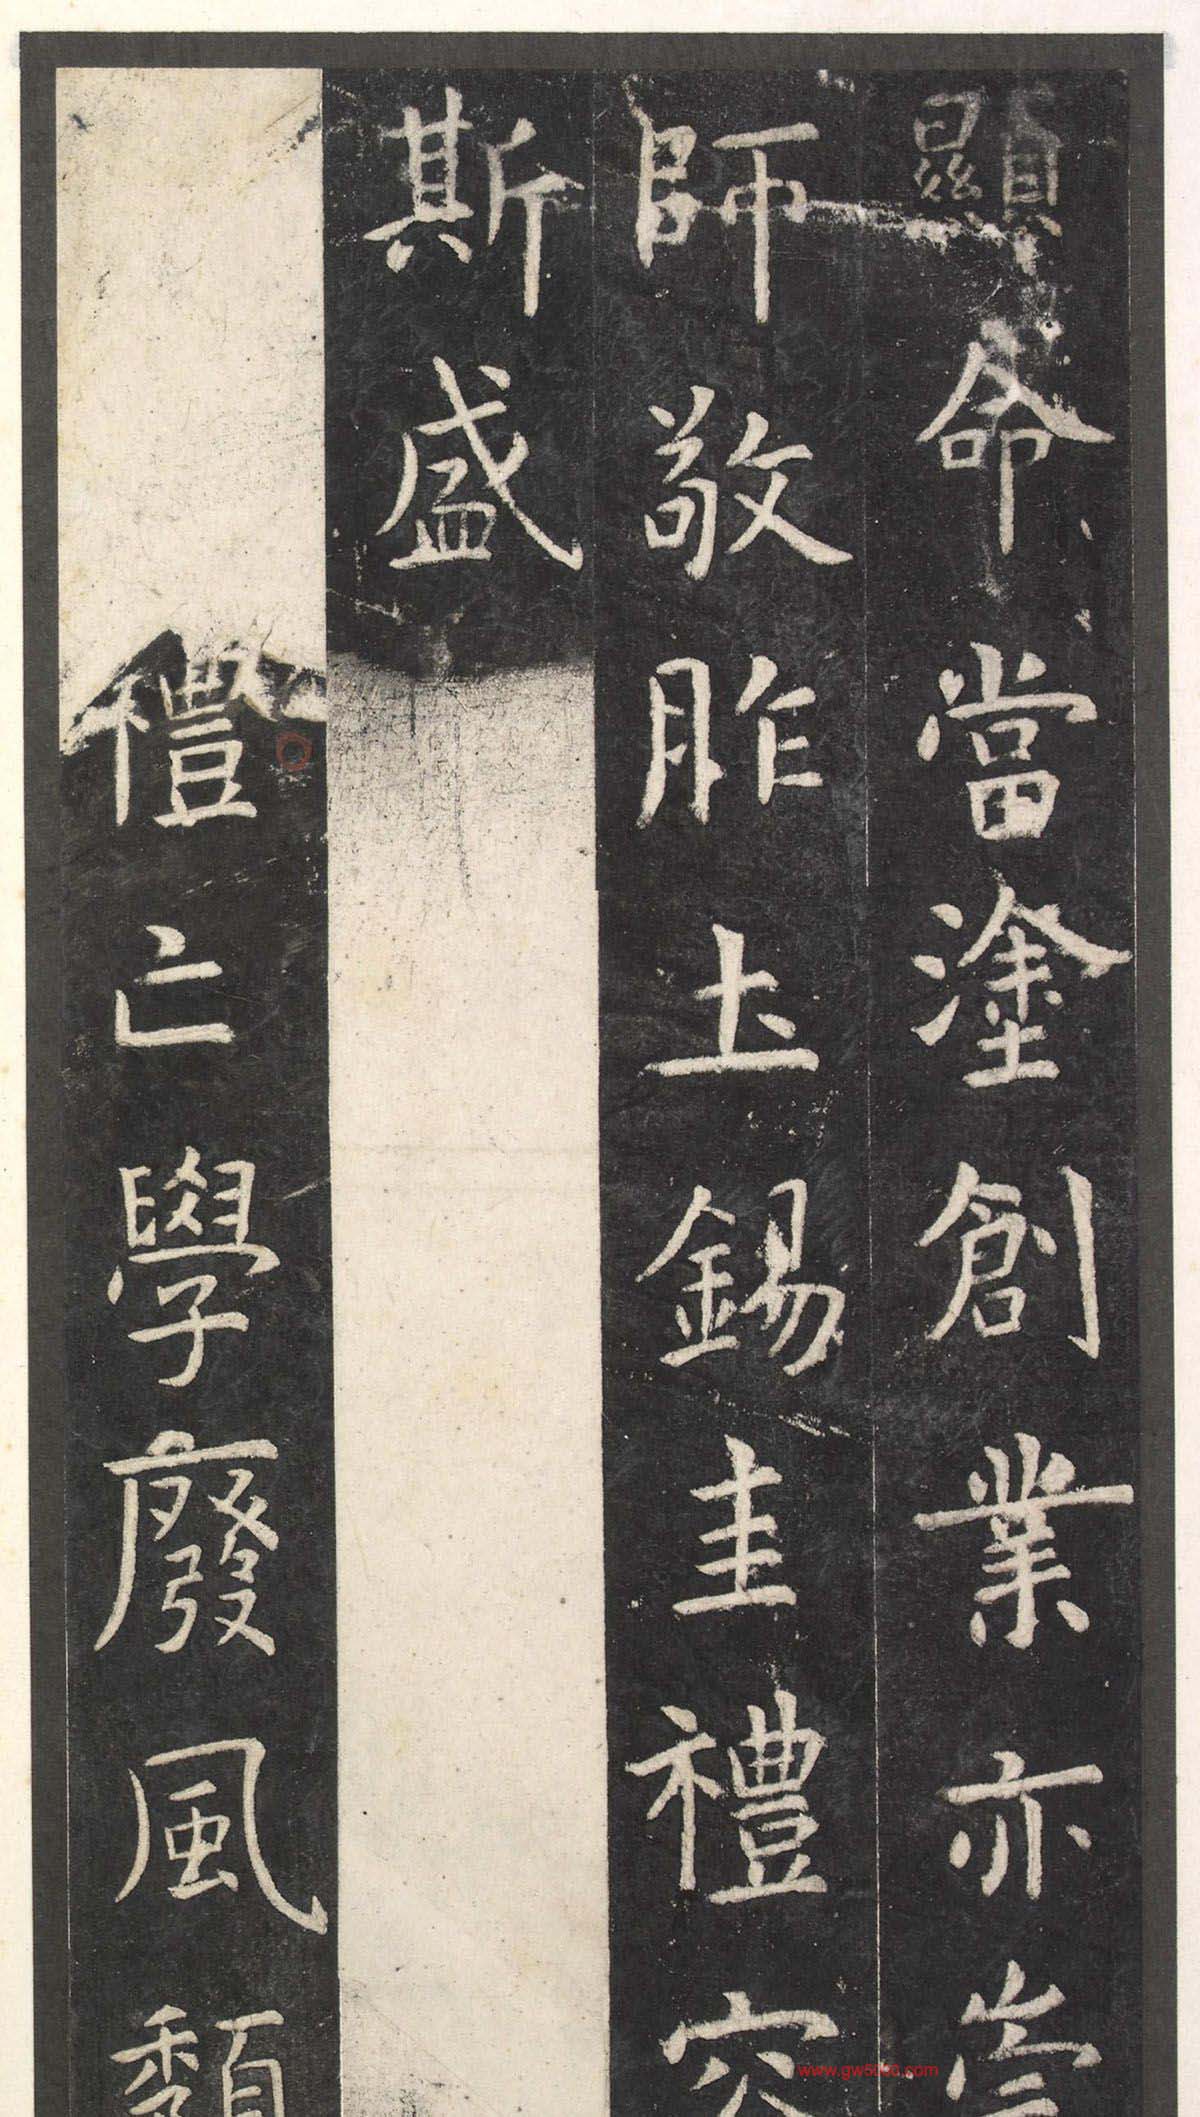 顯命當塗創業亦崇
師敬胙土錫圭禮容
斯盛
禮亡學廢風頹
www.gw5000.com